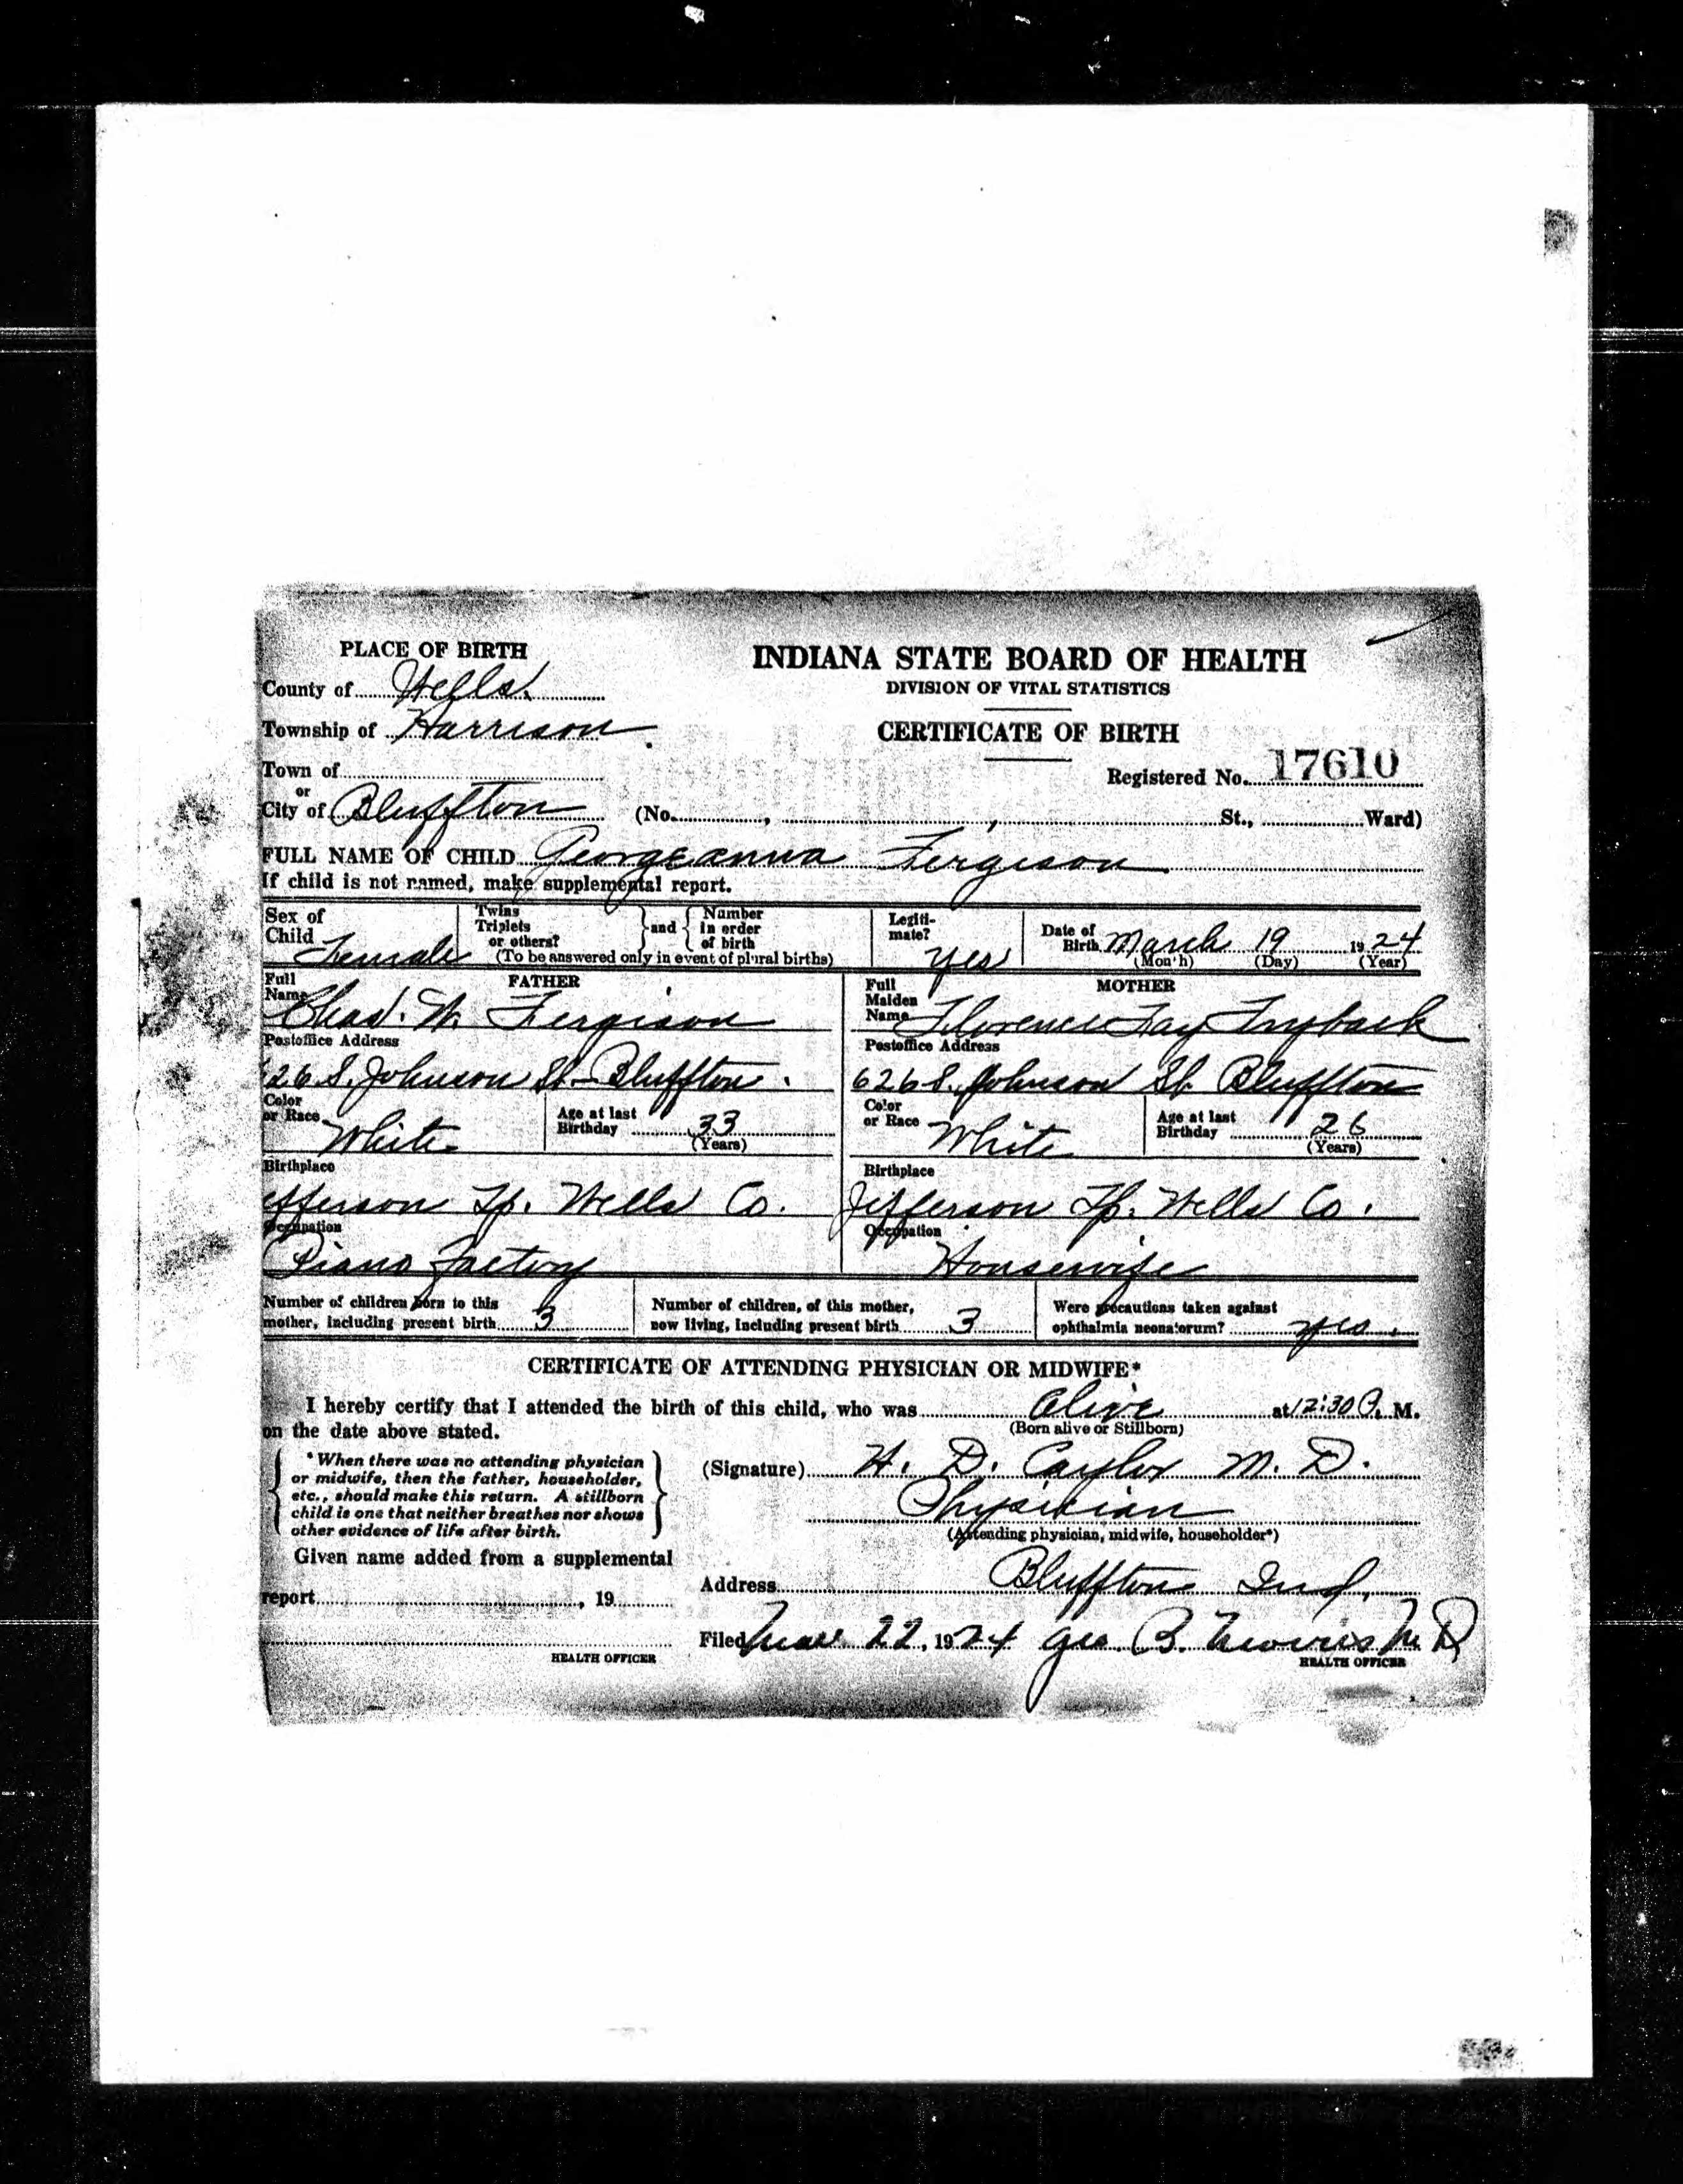 PLACE OF BIRTH
INDIANA STATE BOARD OF HEALTH
County of Wells.
DIVISION OF VITAL STATISTICS
Township of Harrison.
CERTIFICATE OF BIRTH
Town of
Registered No. 17610
or
City of Bluffton (No. , , St., Ward)
FULL NAME OF CHILD Georgeanna Fergison
If child is not named, make supplemental report.
Sex of Child Female
Twins Triplets or others? and Number in order of birth
(To be answered only in event of plural births)
Legiti-mate? Yes
Date of Birth March 19 1924
(Month) (Day) (Year)
FATHER
Full Name Chas. W. Fergison
Postoffice Address
26 S. Johnson St - Bluffton.
Color or Race White
Age at last Birthday 33 (Years)
Birthplace
efferson Tp. Wells Co.
Occupation
Piano Factory
MOTHER
Full Maiden Name Florence Fay Fryback
Postoffice Address
626 S. Johnson St. Bluffton
Color or Race White
Age at last Birthday 26 (Years)
Birthplace
Jefferson Tp. Wells Co.
Occupation
Housewife
Number of children born to this mother, including present birth 3
Number of children, of this mother, now living, including present birth 3
Were precautions taken against ophthalmia neonatorum? yes.
CERTIFICATE OF ATTENDING PHYSICIAN OR MIDWIFE*
I hereby certify that I attended the birth of this child, who was Alive at 12:30 P. M.
(Born alive or Stillborn)
on the date above stated.
*When there was no attending physician
or midwife, then the father, householder,
etc., should make this return. A stillborn
child is one that neither breathes nor shows
other evidence of life after birth.
(Signature) H. D. Caylor M. D.
Physician
(Attending physician, midwife, householder*)
Given name added from a supplemental
report , 19
Address Bluffton Ind.
Filed Mar 22, 1924 Geo B. M D
HEALTH OFFICER
HEALTH OFFICER